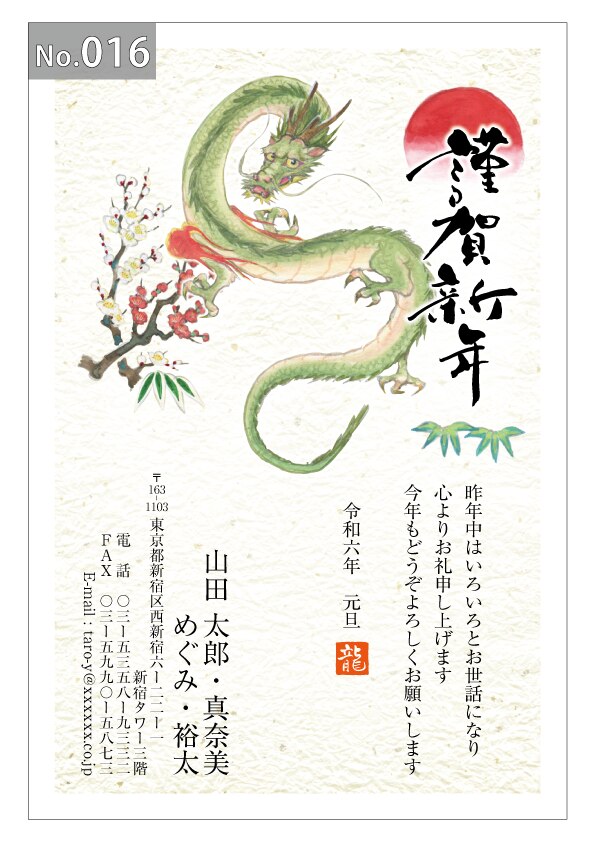 No.016
謹賀新年
昨年中はいろいろとお世話になり
心よりお礼申し上げます
今年もどうぞよろしくお願いします
令和六年 元旦
龍
山田 太郎・真奈美
めぐみ・裕太
〒163-1103 東京都新宿区西新宿六ー二二ー一
新宿タワー三階
電 話 〇三ー五三五八ー九三三二
FAX 〇三ー五九九〇ー五八七三
E-mail : taro-y@xxxxxx.co.jp